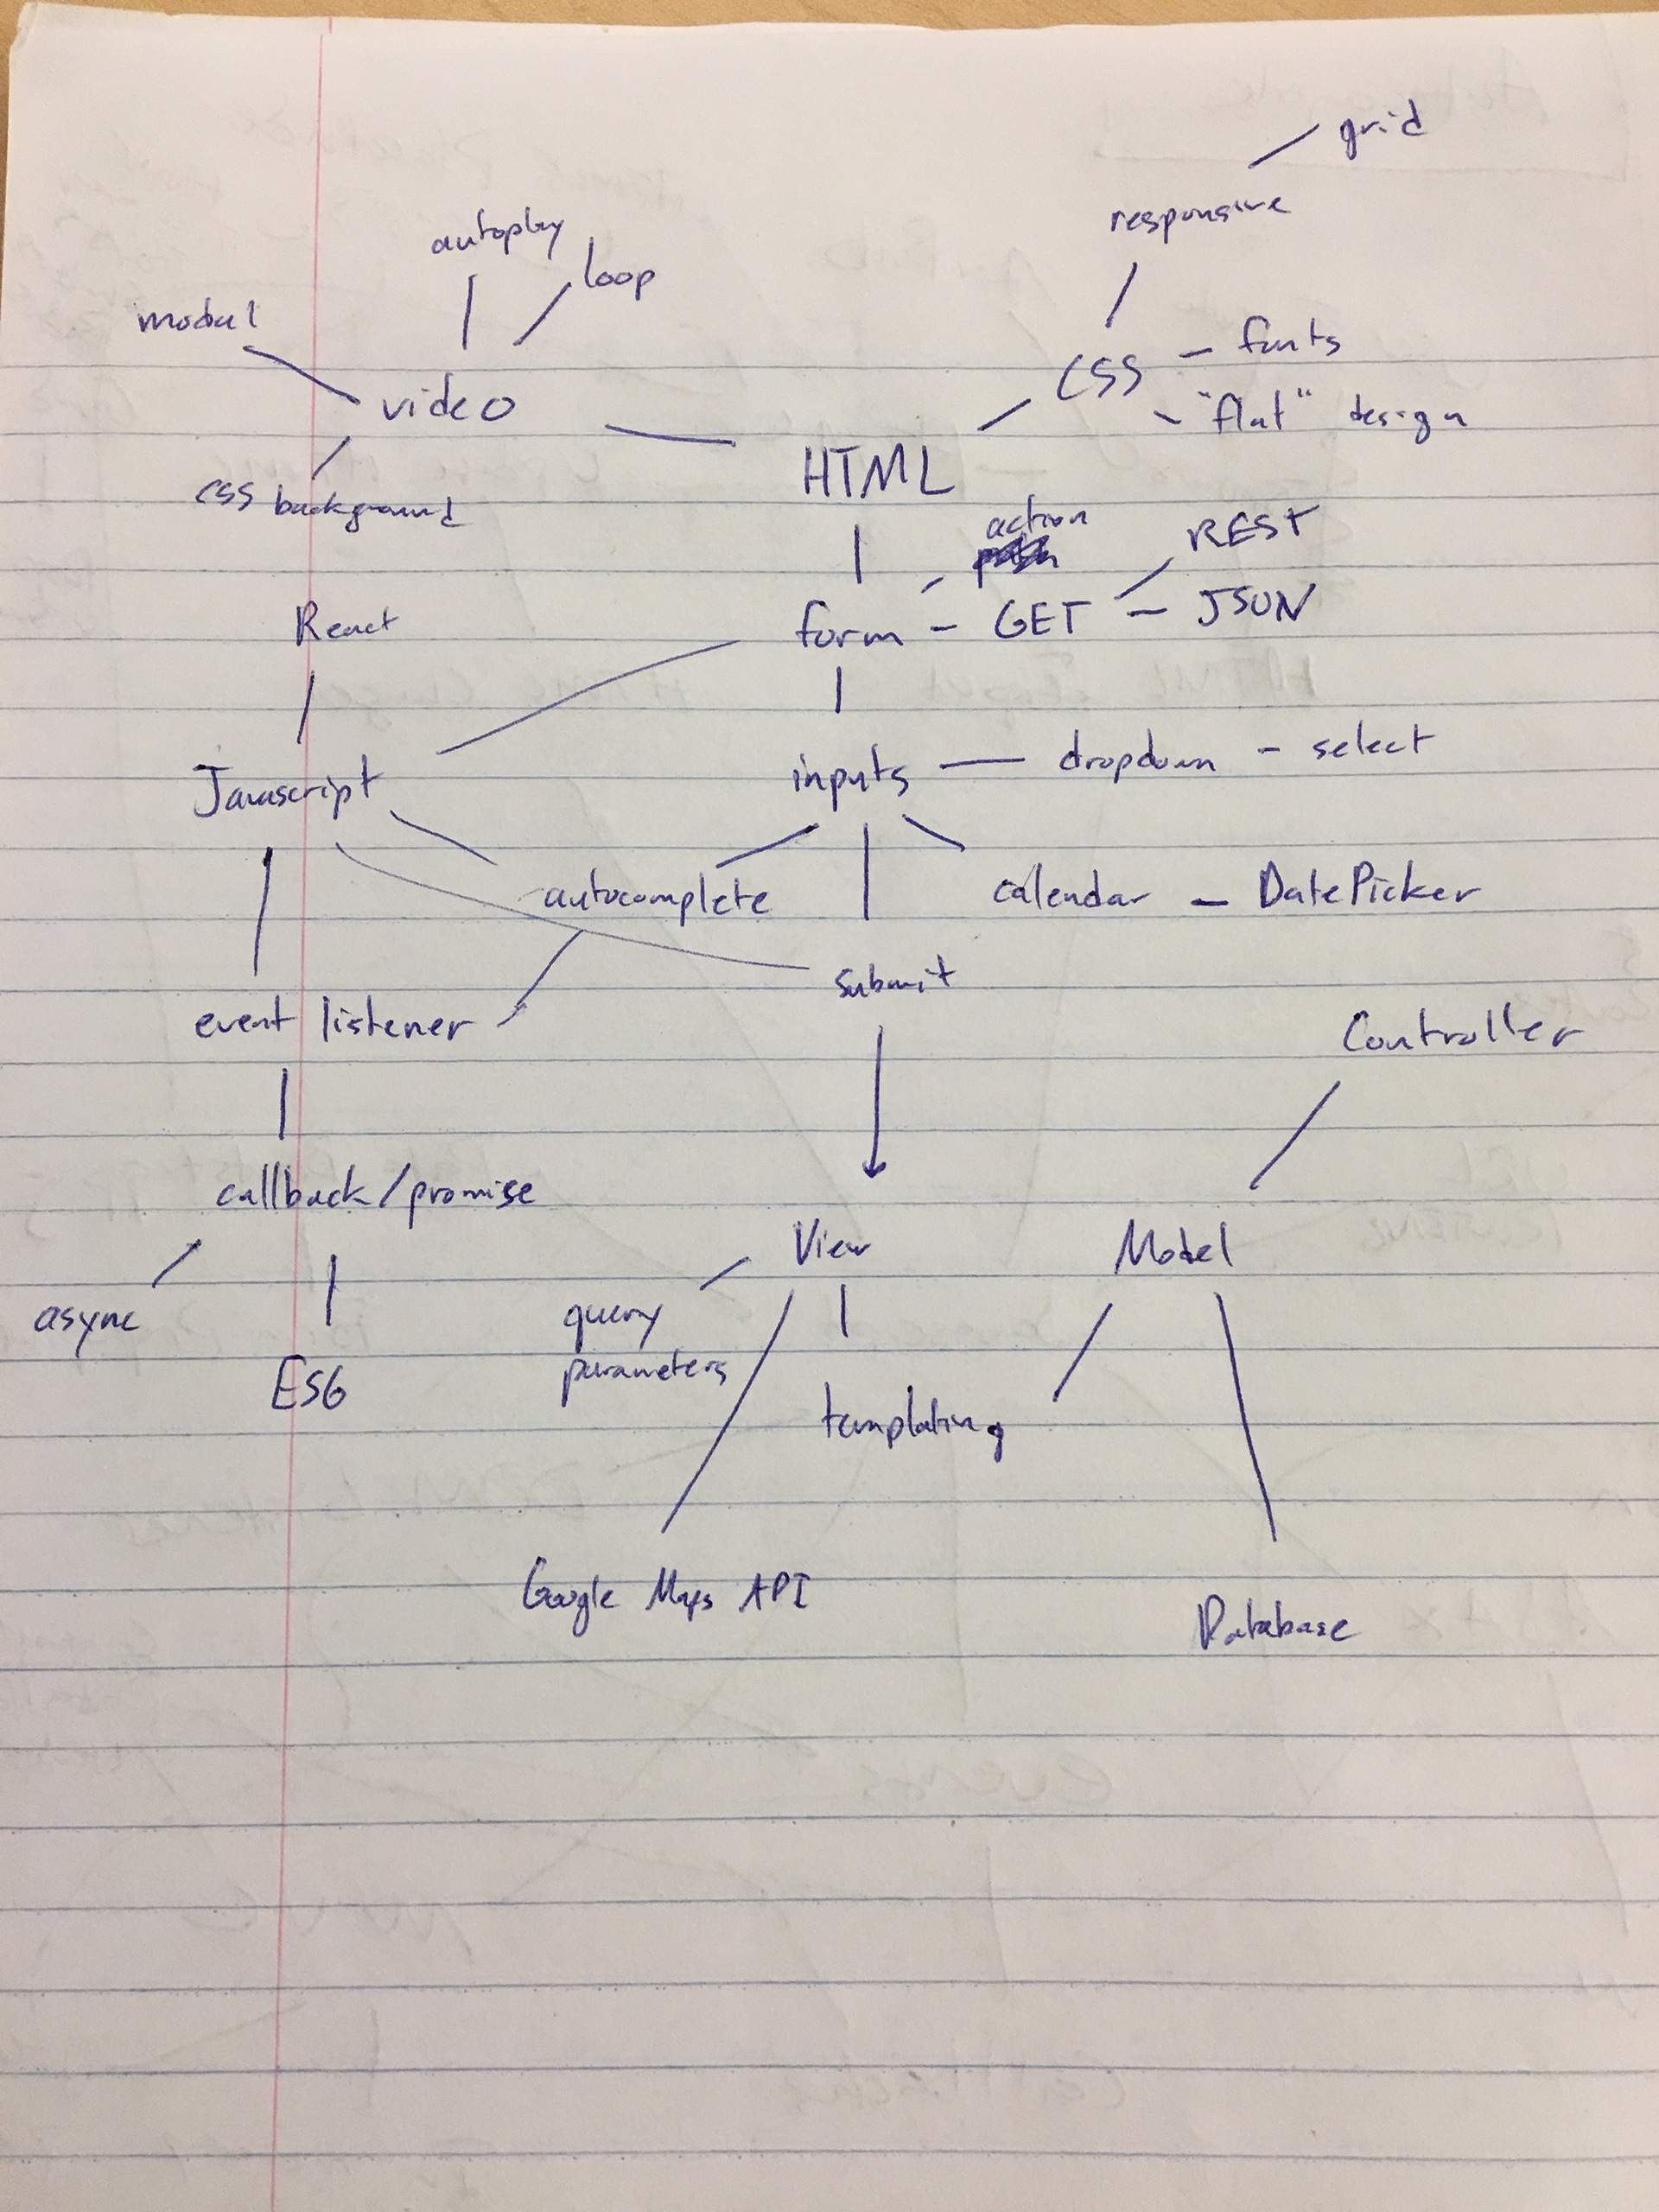 grid
responsive
autoplay
loop
modal
fonts
CSS
"flat" design
video
HTML
css background
action
REST
React
form - GET - JSON
Javascript
inputs — dropdown - select
autocomplete
calendar - DatePicker
submit
event listener
Controller
callback/promise
View
Model
async
query
parameters
ES6
templating
Google Maps API
Database